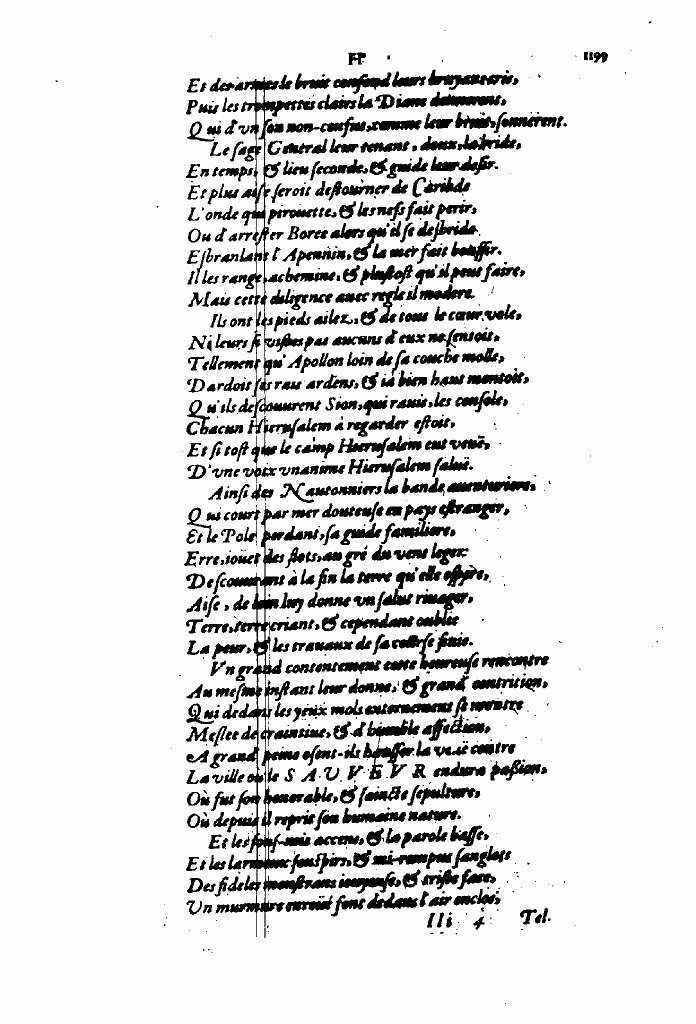 FP 1199
Et des armes le bruit confond leurs bruyans cris,
Puis les trompettes clairs la Diane
Qui d'vn son non-confus, comme leur bruit, sonnerent.
Le sage General leur tenant, doux, la bride,
En temps, & lieu seconde, & guide leur desir.
Et plus aise seroit destourner de Caribde
L'onde qui pirouette, & les nefs fait perir,
Ou d'arrester Boree alors qu'il se desbride
Esbranlant l'Apennin, & la mer fait bouffir.
Il les range, achemine, & plustost qu'il peut faire,
Mais cette diligence auec regle il modere.
Ils ont les pieds ailez, & de tous le cœur vole,
Ni leurs si vistes pas aucuns d'eux ne sentoit,
Tellement qu'Apollon loin de sa couche molle,
Dardoit ses rais ardens, & ià bien haut montoit,
Qu'ils descouurent Sion, qui rauis, les console,
Chacun Hierusalem à regarder estoit,
Et si tost que le camp Hierusalem eut veuë,
D'vne voix vnanime Hierusalem saluë.
Ainsi des Nautonniers la bande auenturiere,
Qui court par mer douteuse en pays estranger,
Et le Pole perdant, sa guide familiere,
Erre, iouet des flots, au gré du vent leger:
Descouurant à la fin la terre qu'elle espere,
Aise, de loin luy donne vn salut riuager,
Terre, terre criant, & cependant oublie
La peur, & les trauaux de sa course finie.
Vn grand contentement cette heureuse rencontre
Au mesme instant leur donne, & grand' contrition,
Qui dedans les yeux mols externement se montre
Meslee de craintiue, & d'humble affection,
A grand' peine osent-ils hausser la veuë contre
La ville où le SAUVEVR endura passion,
Où fut son honorable, & saincte sepulture,
Où depuis il reprit son humaine nature.
Et les sous-mis accens, & la parole basse,
Et les larmeux souspirs, & mi-rompus sanglots
Des fideles monstrans ioyeuse, & triste face,
Un murmure enroüé font dedans l'air enclos,
Iii 4 Tel.